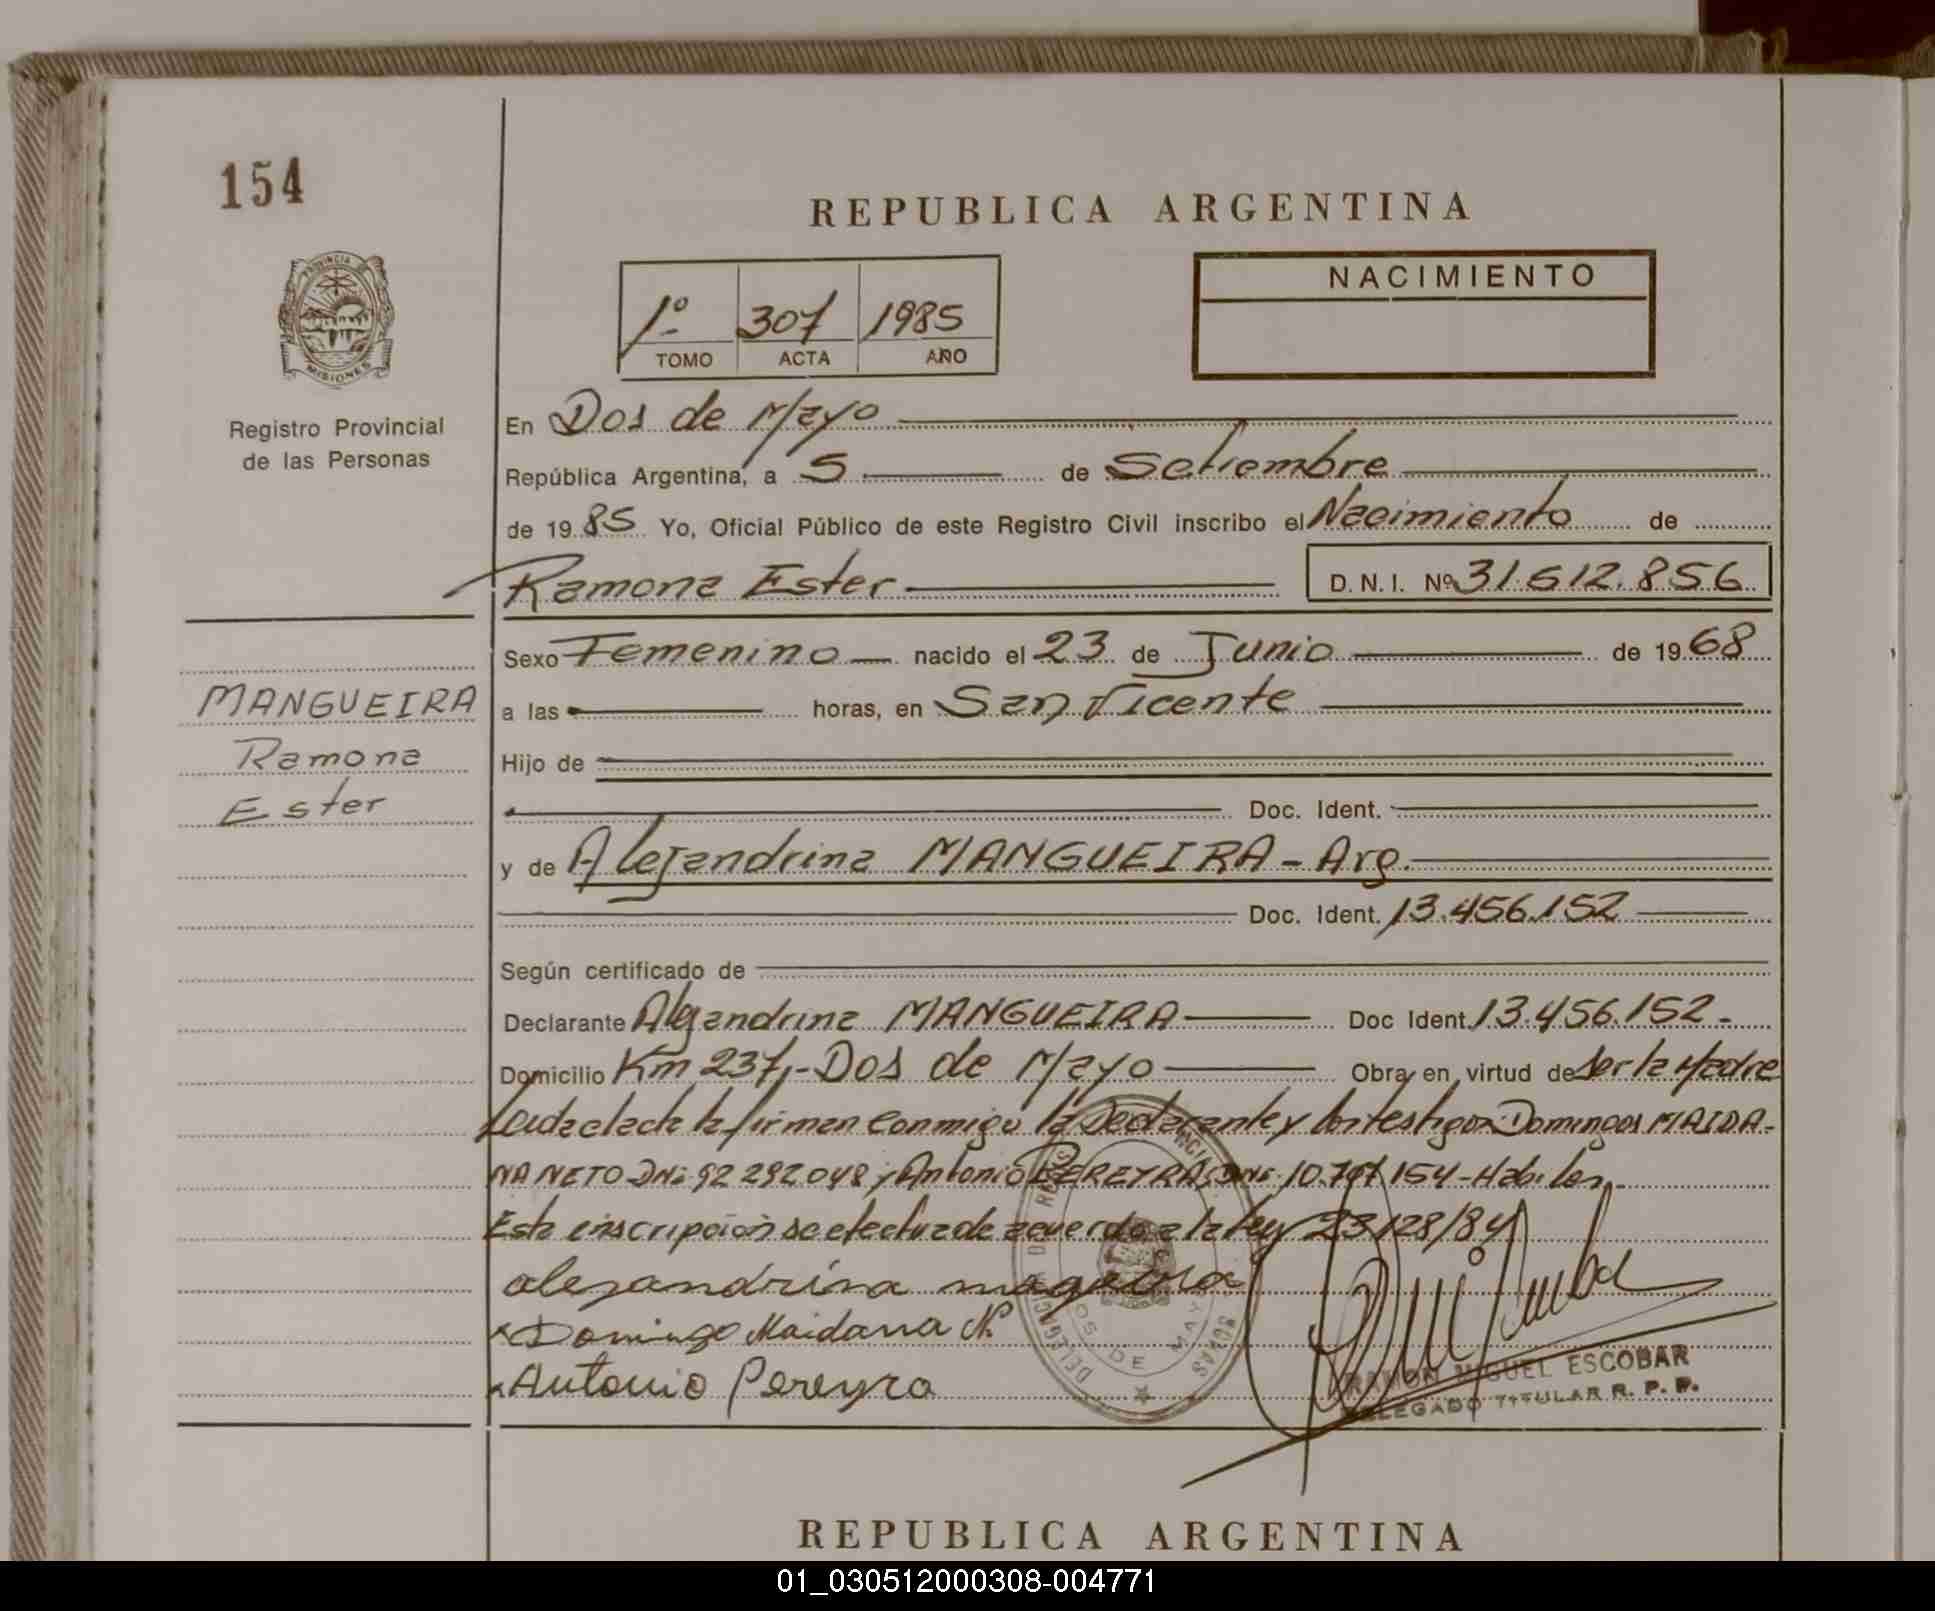 154
REPUBLICA ARGENTINA
PROVINCIA DE
MISIONES
Registro Provincial
de las Personas
1º 307 1985
TOMO ACTA AÑO
NACIMIENTO
En Dos de Mayo
República Argentina, a 5 de Setiembre
de 1985 Yo, Oficial Público de este Registro Civil inscribo el Nacimiento de
Ramona Ester D.N.I. Nº 31.612.856
Sexo Femenino nacido el 23 de Junio de 1968
MANGUEIRA
Ramona
Ester
a las horas, en San Vicente
Hijo de
Doc. Ident.
y de Alejandrina MANGUEIRA - Arg.
Doc. Ident. 13.456.152
Según certificado de
Declarante Alejandrina MANGUEIRA Doc Ident. 13.456.152.-
Domicilio Km 237,- Dos de Mayo Obra en virtud de ser la Madre
Leida el acta la firman conmigo la Declarante y los testigos Domingos MAIDA-
NA NETO DNi 92 292 048 y Antonio PEREYRA DNi 10.7 154 - Habiles
Esta inscripción se efectua de acuerdo a la ley 23128/84
alejandrina magueira
x Domingo Maidana N.
x Antonio Pereyra
DOS DE MAYO
RAMON MIGUEL ESCOBAR
DELEGADO TITULAR R. P. P.
REPUBLICA ARGENTINA
01_030512000308-004771